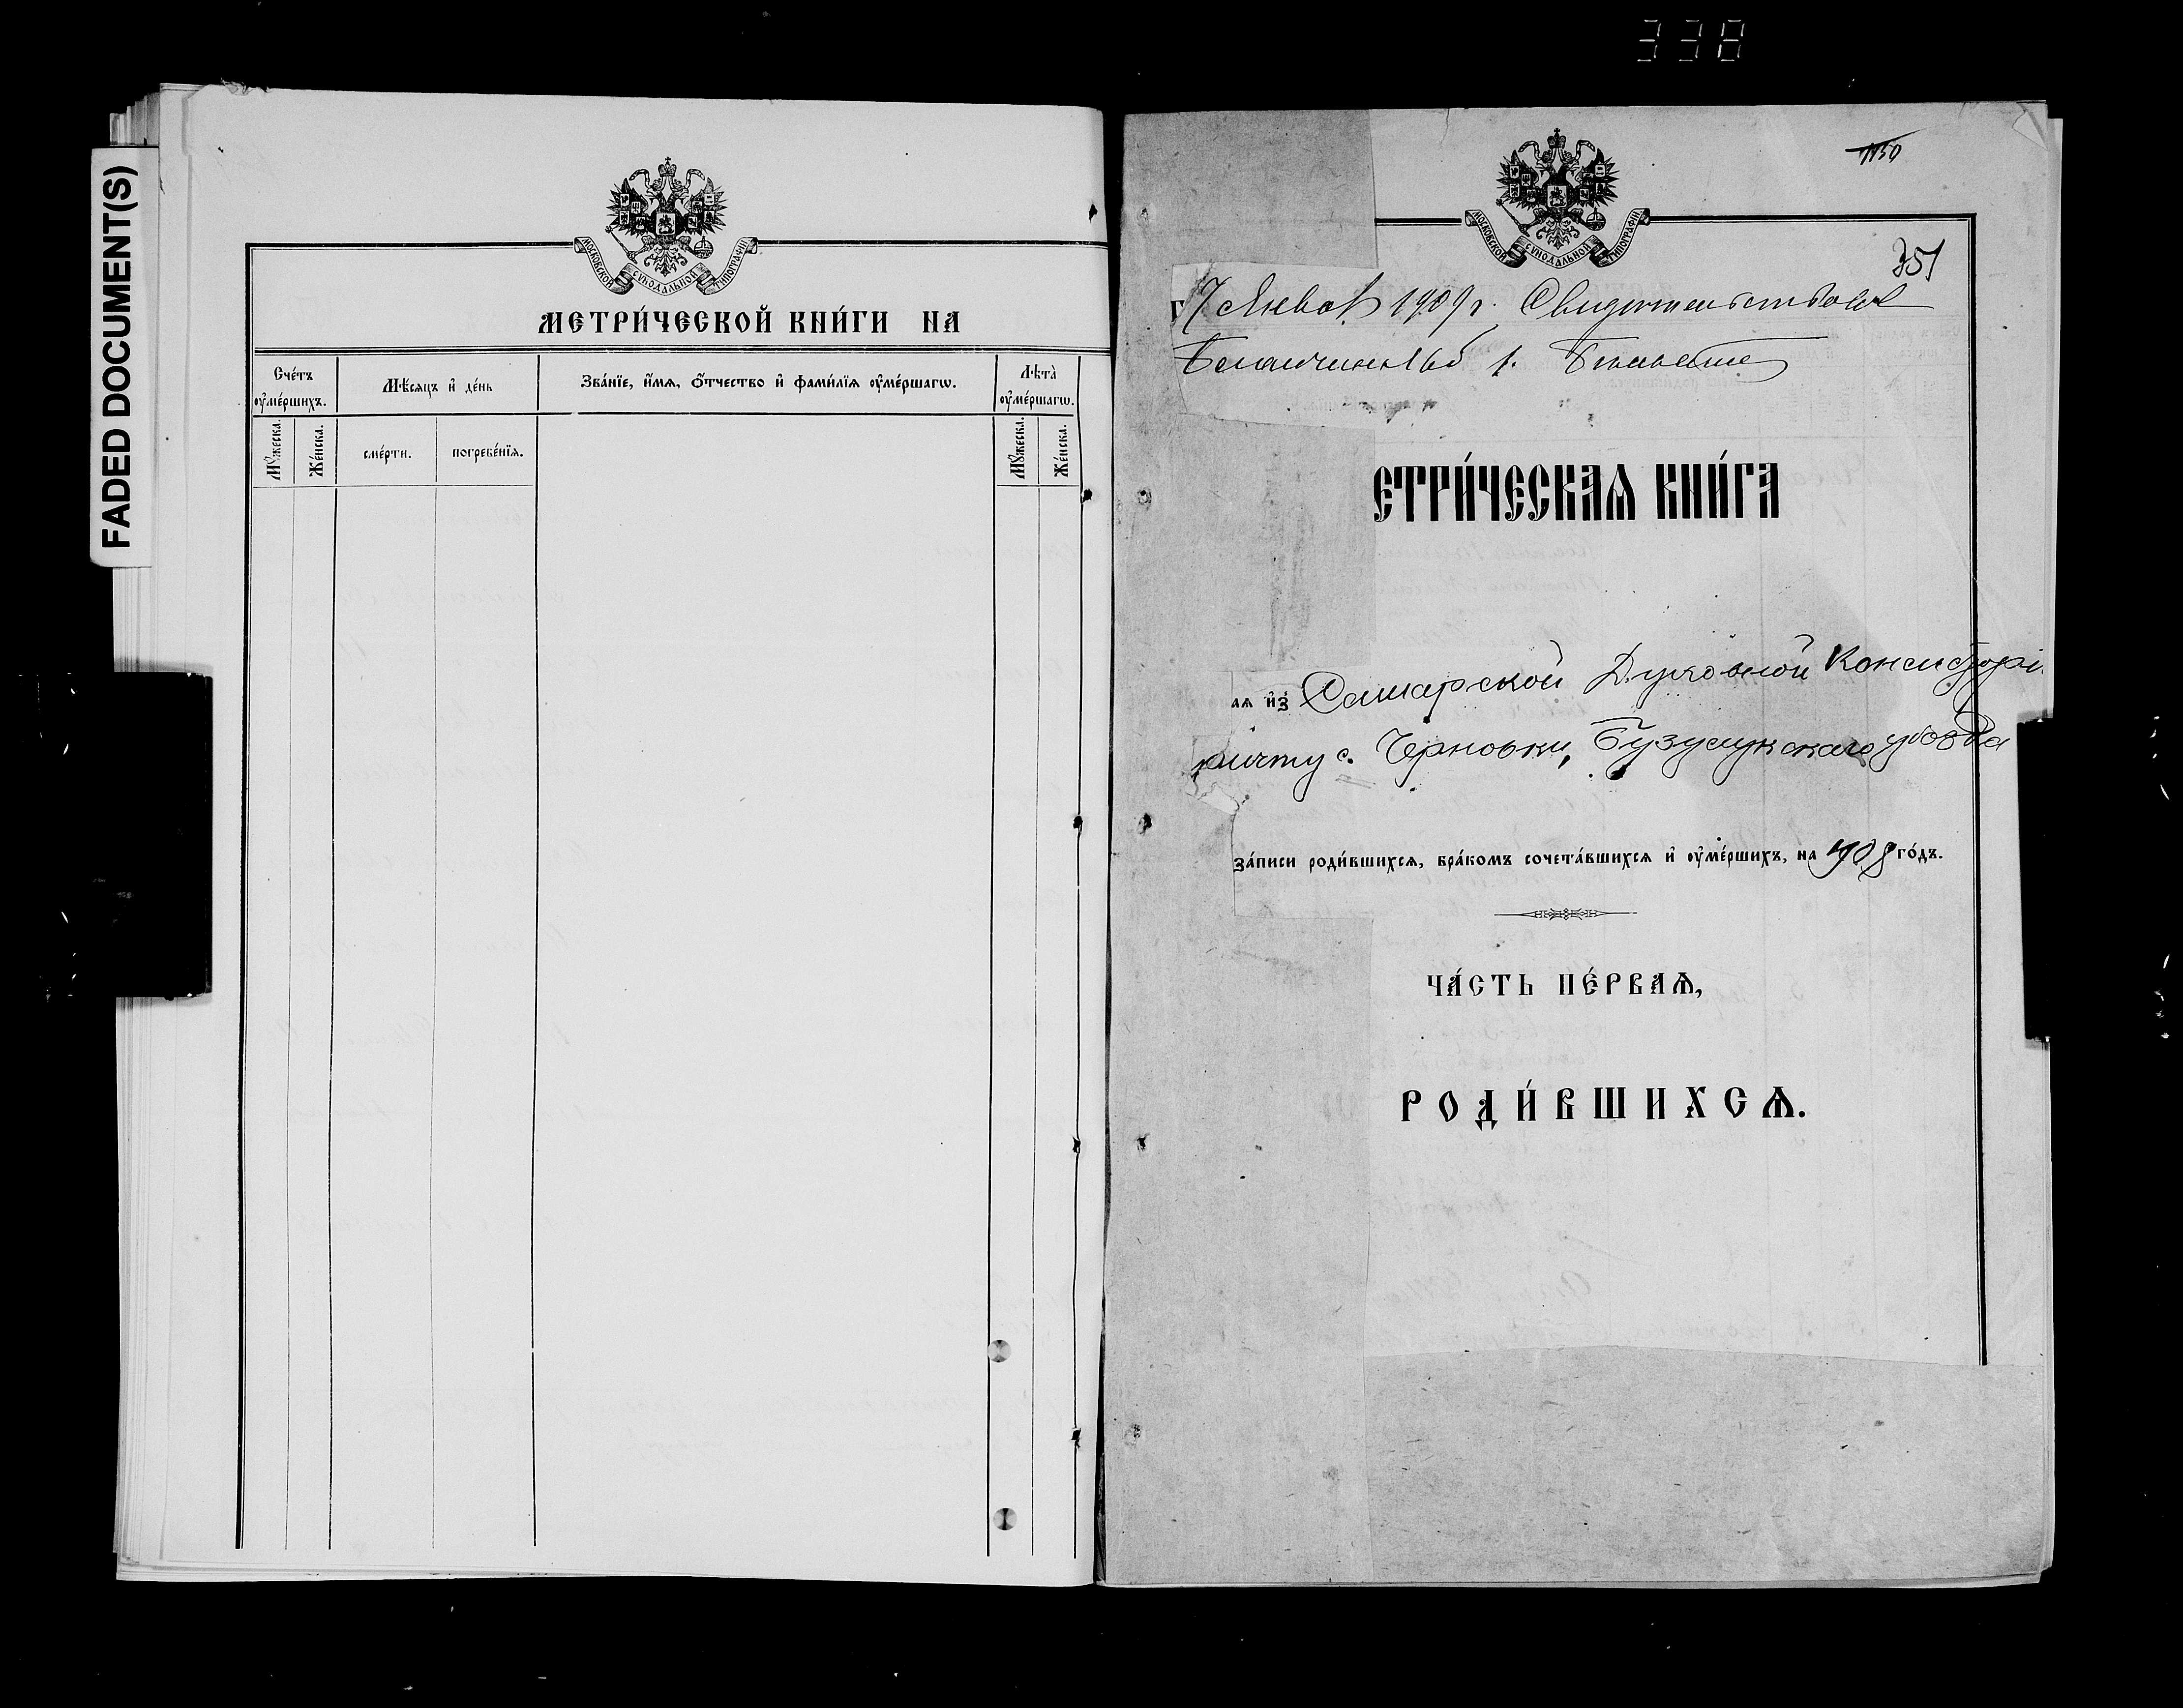 338
FADED DOCUMENT(S)
МОСКОВСКОЙ СУНОДАЛЬНОЙ ТИПОГРАФІИ
МЕТРИ́ЧЕСКОЙ КНИ́ГИ НА
Сче́тъ оу҆ме́ршихъ.
Мѣ́сяцъ и҆ де́нь
Зва́нїе, и҆́мѧ, ѻ҆́тчество и҆ фами́лїѧ оу҆ме́ршагѡ.
Лѣта̀ оу҆ме́ршагѡ.
Мꙋ́жеска.
Же́нска.
сме́рти.
погребе́нїѧ.
Мꙋ́жеска.
Же́нска.
1150
МОСКОВСКОЙ СУНОДАЛЬНОЙ ТИПОГРАФІИ
351
7 Января 1909 г. Свидетельствовал
Благочинный
ЕТРИ́ЧЕСКАѦ КНИ́ГА
аѧ и҆з̾ Самарской Духовной Консисторі
причту с. Черновки, Бузулукскаго уѣзда
за́писи роди́вшихсѧ, бра́комъ сочета́вшихсѧ и҆ оу҆ме́ршихъ, на 1908 го́дъ.
ЧА́СТЬ ПЕ́РВАѦ,
РОДИ́ВШИХСѦ.